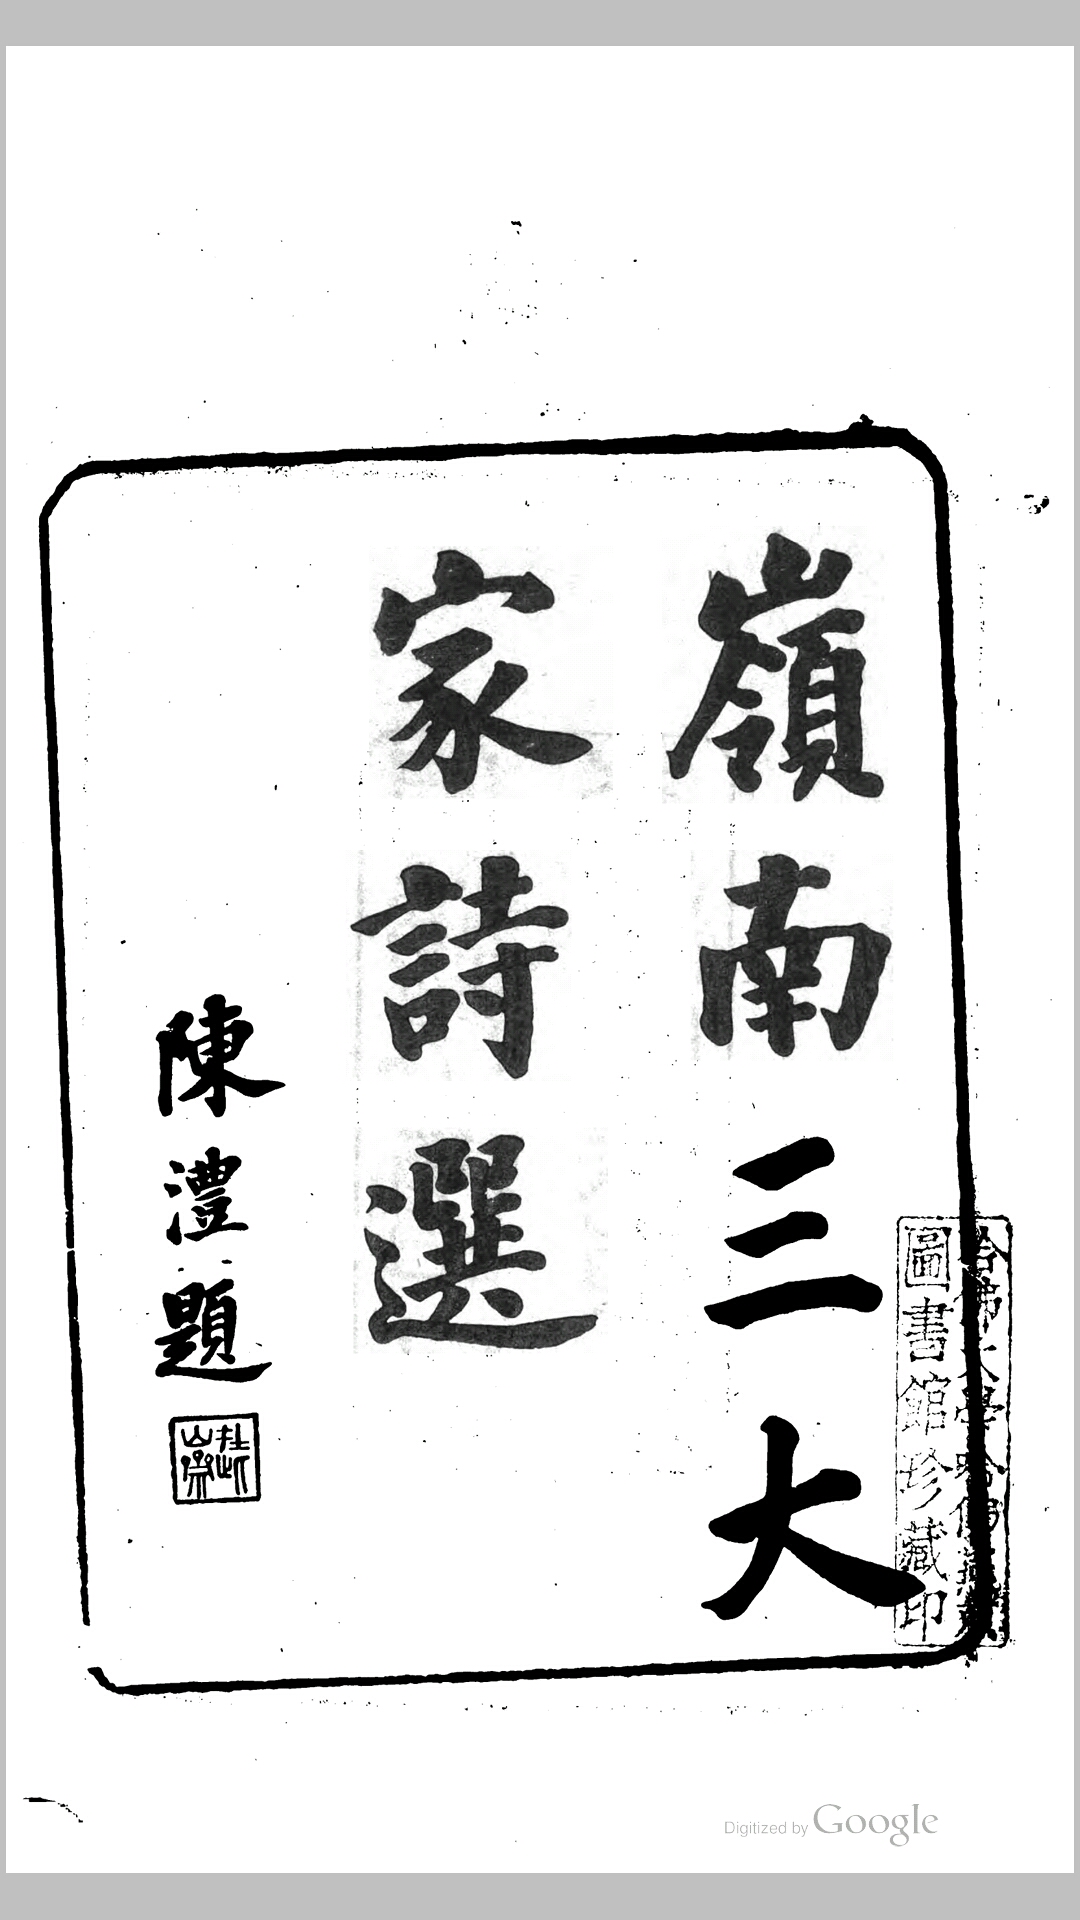 嶺南三大
家詩選
陳澧題
哈佛大學哈佛燕京
圖書館珍藏印
Digitized by Google